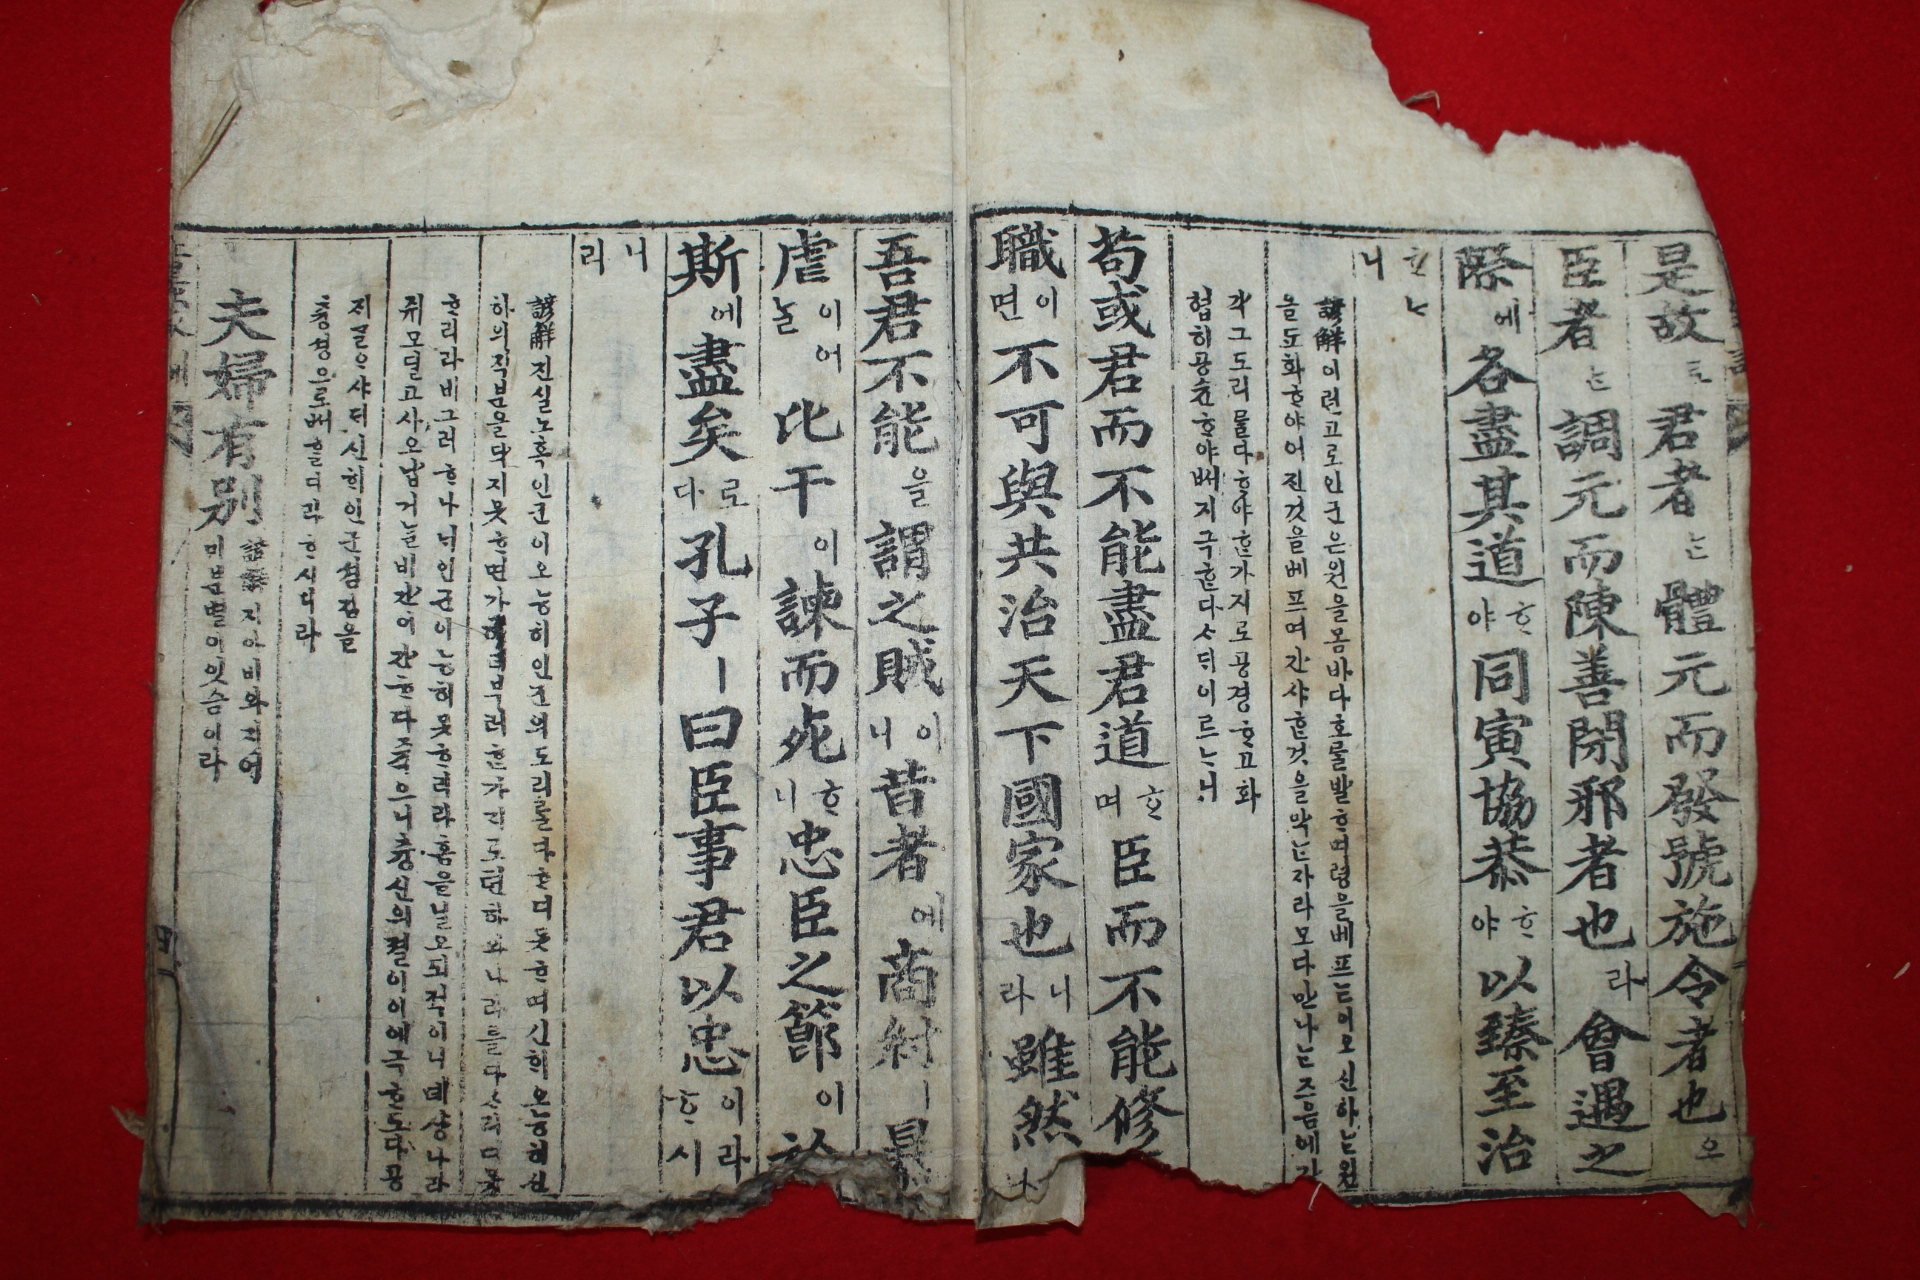 是故로君者ᄂᆞᆫ體元而發號施令者也오
臣者ᄂᆞᆫ調元而陳善閉邪者也라會遇之
際에各盡其道ᄒᆞ야同寅協恭ᄒᆞ야以臻至治
ᄒᆞᄂᆞ니
諺解이런고로인군은원을몸바다호를발ᄒᆞ며령을베프ᄂᆞᆫ이오신하ᄂᆞᆫ원
을됴화ᄒᆞ야어진것을베프며간샤ᄒᆞᆫ것을막ᄂᆞᆫ쟈라모다만나ᄂᆞᆫ즈음에각
각그도리를다ᄒᆞ야ᄒᆞᆫ가지로공경ᄒᆞ고화
협히공슌ᄒᆞ야ᄡᅥ지극ᄒᆞᆫ다ᄉᆞ되이르ᄂᆞ니
苟或君而不能盡君道ᄒᆞ며臣而不能修
職이면不可與共治天下國家也니라雖然
吾君不能을謂之賊이니昔者에商紂ㅣ暴
虐이어ᄂᆞᆯ比干이諫而死ᄒᆞ니忠臣之節이於
斯에盡矣로다孔子ㅣ曰臣事君以忠이라ᄒᆞ시
니리
諺解진실노혹인군이오능히인군의도리를다ᄒᆞ디못ᄒᆞ며신히오능히신
하의직분을닥지못ᄒᆞ면가히더부러ᄒᆞᆫ가지로텬하와나라를다ᄉᆞ리디못
ᄒᆞ리라비그러ᄒᆞ나너인군이능히못ᄒᆞ리라홈을닐오되적이니녜샹나라
쥐모딜고사오납거ᄂᆞᆯ비간이간ᄒᆞ다죽으니츙신의졀이이에극ᄒᆞ도다공
ᄌᆡ글ᄋᆞ샤ᄃᆡ신히인군셤김을
츙셩으로ᄡᅥᄒᆞᆯ디라ᄒᆞ시니라
夫婦有別諺解지아비와지어
미분별이잇슴이라